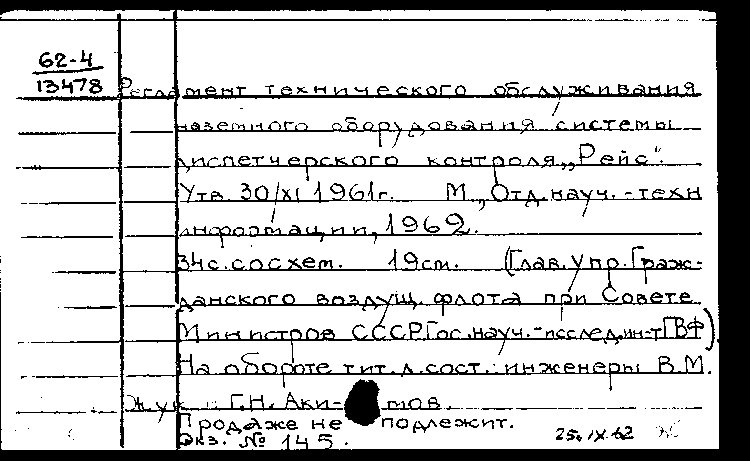 62-4
13478
Регламент технического обслуживания
наземного оборудования системы
диспетчерского контроля „Рейс".
Утв. 30/XI 1961г. М., Отд. науч.-техн
информации, 1962.
34с. со схем. 19см. (Глав. упр. Граж-
данского воздуш. флота при Совете
Министров СССР. Гос. науч.-исслед. ин-т ГВФ)
На обороте тит. л. сост.: инженеры В.М.
Жук и Г.Н. Аки- мов.
Продаже не подлежит.
Экз. № 145.
25.IX.62